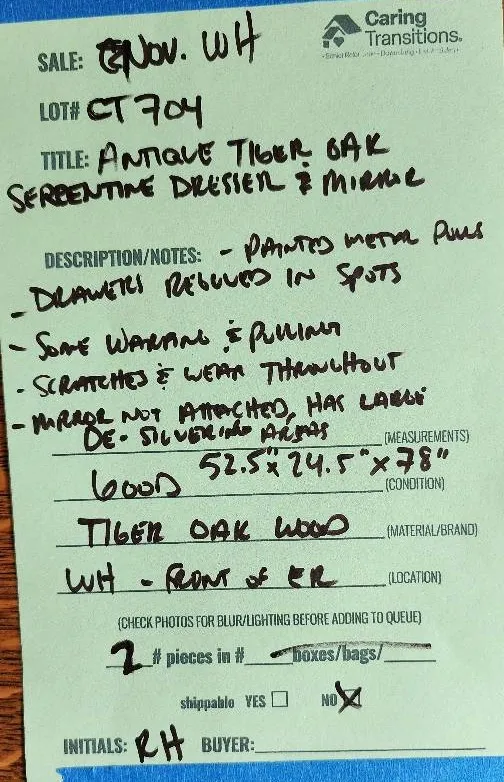 Caring
Transitions.
SALE: NOV. WH
LOT# CT704
TITLE: ANTIQUE TIGER OAK
SERPENTINE DRESSER & MIRROR
DESCRIPTION/NOTES: - PAINTED METAL PULLS
- DRAWERS REGLUED IN SPOTS
- SOME WARPING & PULLING
- SCRATCHES & WEAR THROUGHOUT
- MIRROR NOT ATTACHED, HAS LARGE
DE-SILVERING AREAS
52.5" x 24.5" x 78" (MEASUREMENTS)
GOOD (CONDITION)
TIGER OAK WOOD (MATERIAL/BRAND)
WH - FRONT OF ER (LOCATION)
(CHECK PHOTOS FOR BLUR/LIGHTING BEFORE ADDING TO QUEUE)
2 # pieces in # boxes/bags/
shippable YES ☐ NO ☒
INITIALS: RH BUYER: